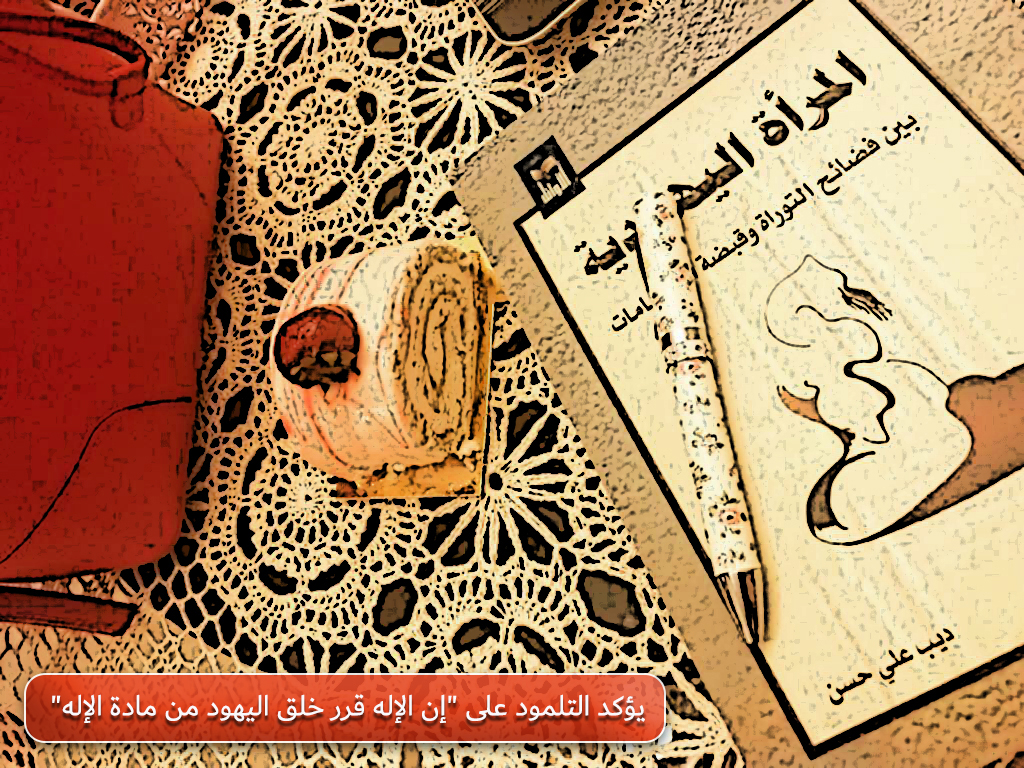 المرأة اليهودية
بين فضائح التوراة وقبضة
ديب علي حسن
يؤكد التلمود على "إن الإله قرر خلق اليهود من مادة الإله"